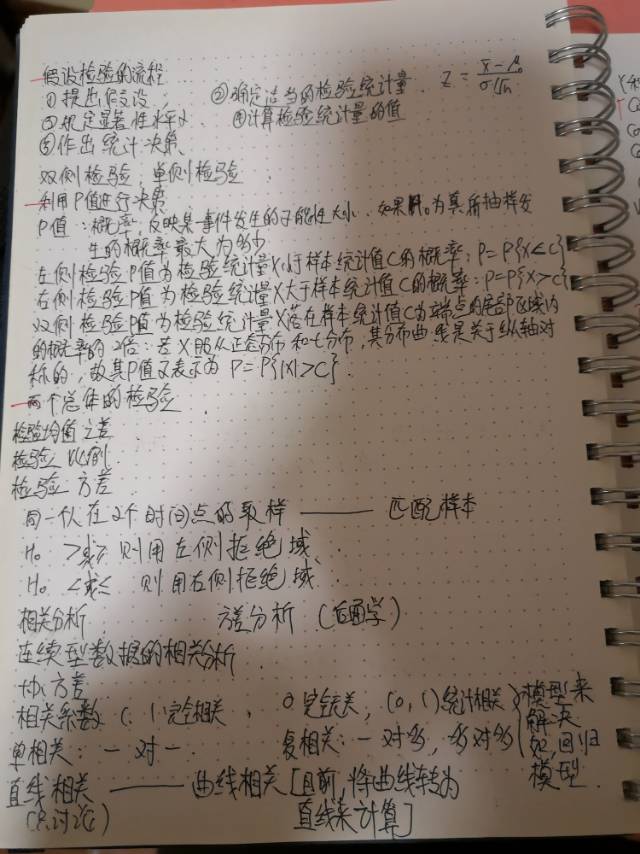 假设检验的流程
①提出假设, ②确定适当的检验统计量. Z = x̄-μ₀/σ/√n
③规定显著性水平α. ④计算检验统计量的值
⑤作出统计决策.
双侧检验, 单侧检验
利用P值进行决策.
P值: 概率, 反映某一事件发生的可能性大小. 如果H₀为真所抽样发
生的概率最大为多少
左侧检验P值为检验统计量X小于样本统计值C的概率: P=P{X<C}
右侧检验P值为检验统计量X大于样本统计值C的概率: P=P{X>C}
双侧检验P值为检验统计量X落在样本统计值C为端点的尾部区域内
的概率的2倍: 若X服从正态分布和t分布, 其分布曲线是关于纵轴对
称的, 故其P值又表示为 P=P{|X|>C}.
两个总体的检验
检验均值之差
检验比例
检验方差
同一个人在2个时间点的取样 —— 匹配样本
H₀ >或≥ 则用左侧拒绝域.
H₀ <或≤ 则用右侧拒绝域.
相关分析 方差分析 (后面学)
连续型数据的相关分析
协方差
相关系数 1完全相关, 0完全无关, (0,1)统计相关 模型来
单相关: 一对一 复相关: 一对多, 多对多 解决
如, 回归
模型.
直线相关 —— 曲线相关 [目前, 将曲线转为
直线来计算]